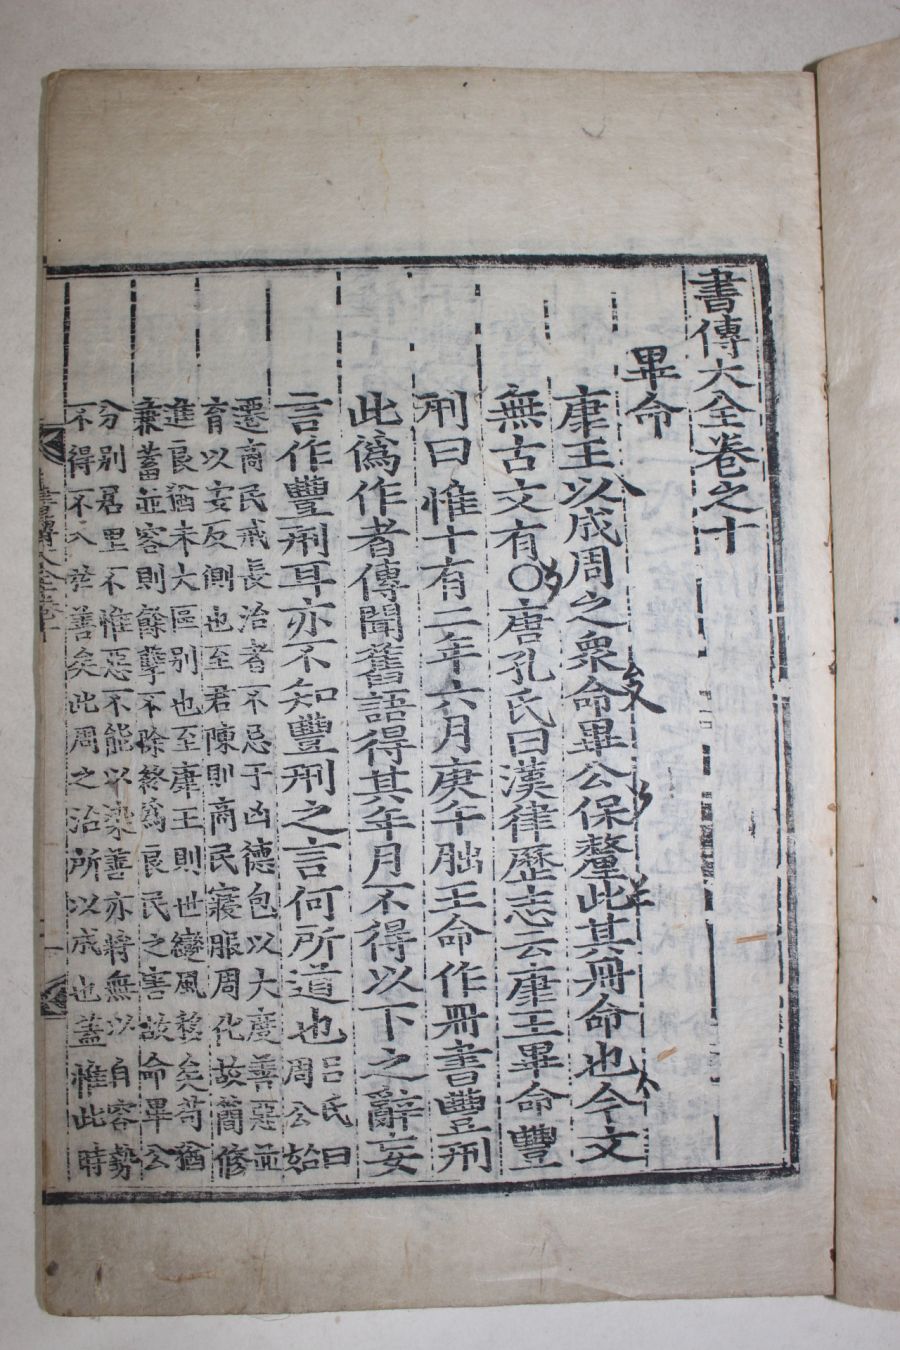 書傳大全卷之十
畢命
康王以成周之衆命畢公保釐此其冊命也今文
無古文有○唐孔氏曰漢律歷志云康王畢命豐
刑曰惟十有二年六月庚午朏王命作冊書豐刑
此僞作者傳聞舊語得其年月不得以下之辭妄
言作豐刑耳亦不知豐刑之言何所道也
呂氏曰
周公始
遷商民戒長治者不忌于凶德包以大度善惡並
育以安反側也至君陳則商民寖服周化故簡修
進良猶未大區別也至康王則世變風移矣苟猶
兼蓄並容則餘孽不除終爲良民之害故命畢公
分別居里不惟惡不能以染善亦將無以自容勢
不得不入於善矣此周之治所以成也蓋惟此時
書傳大全卷十
一